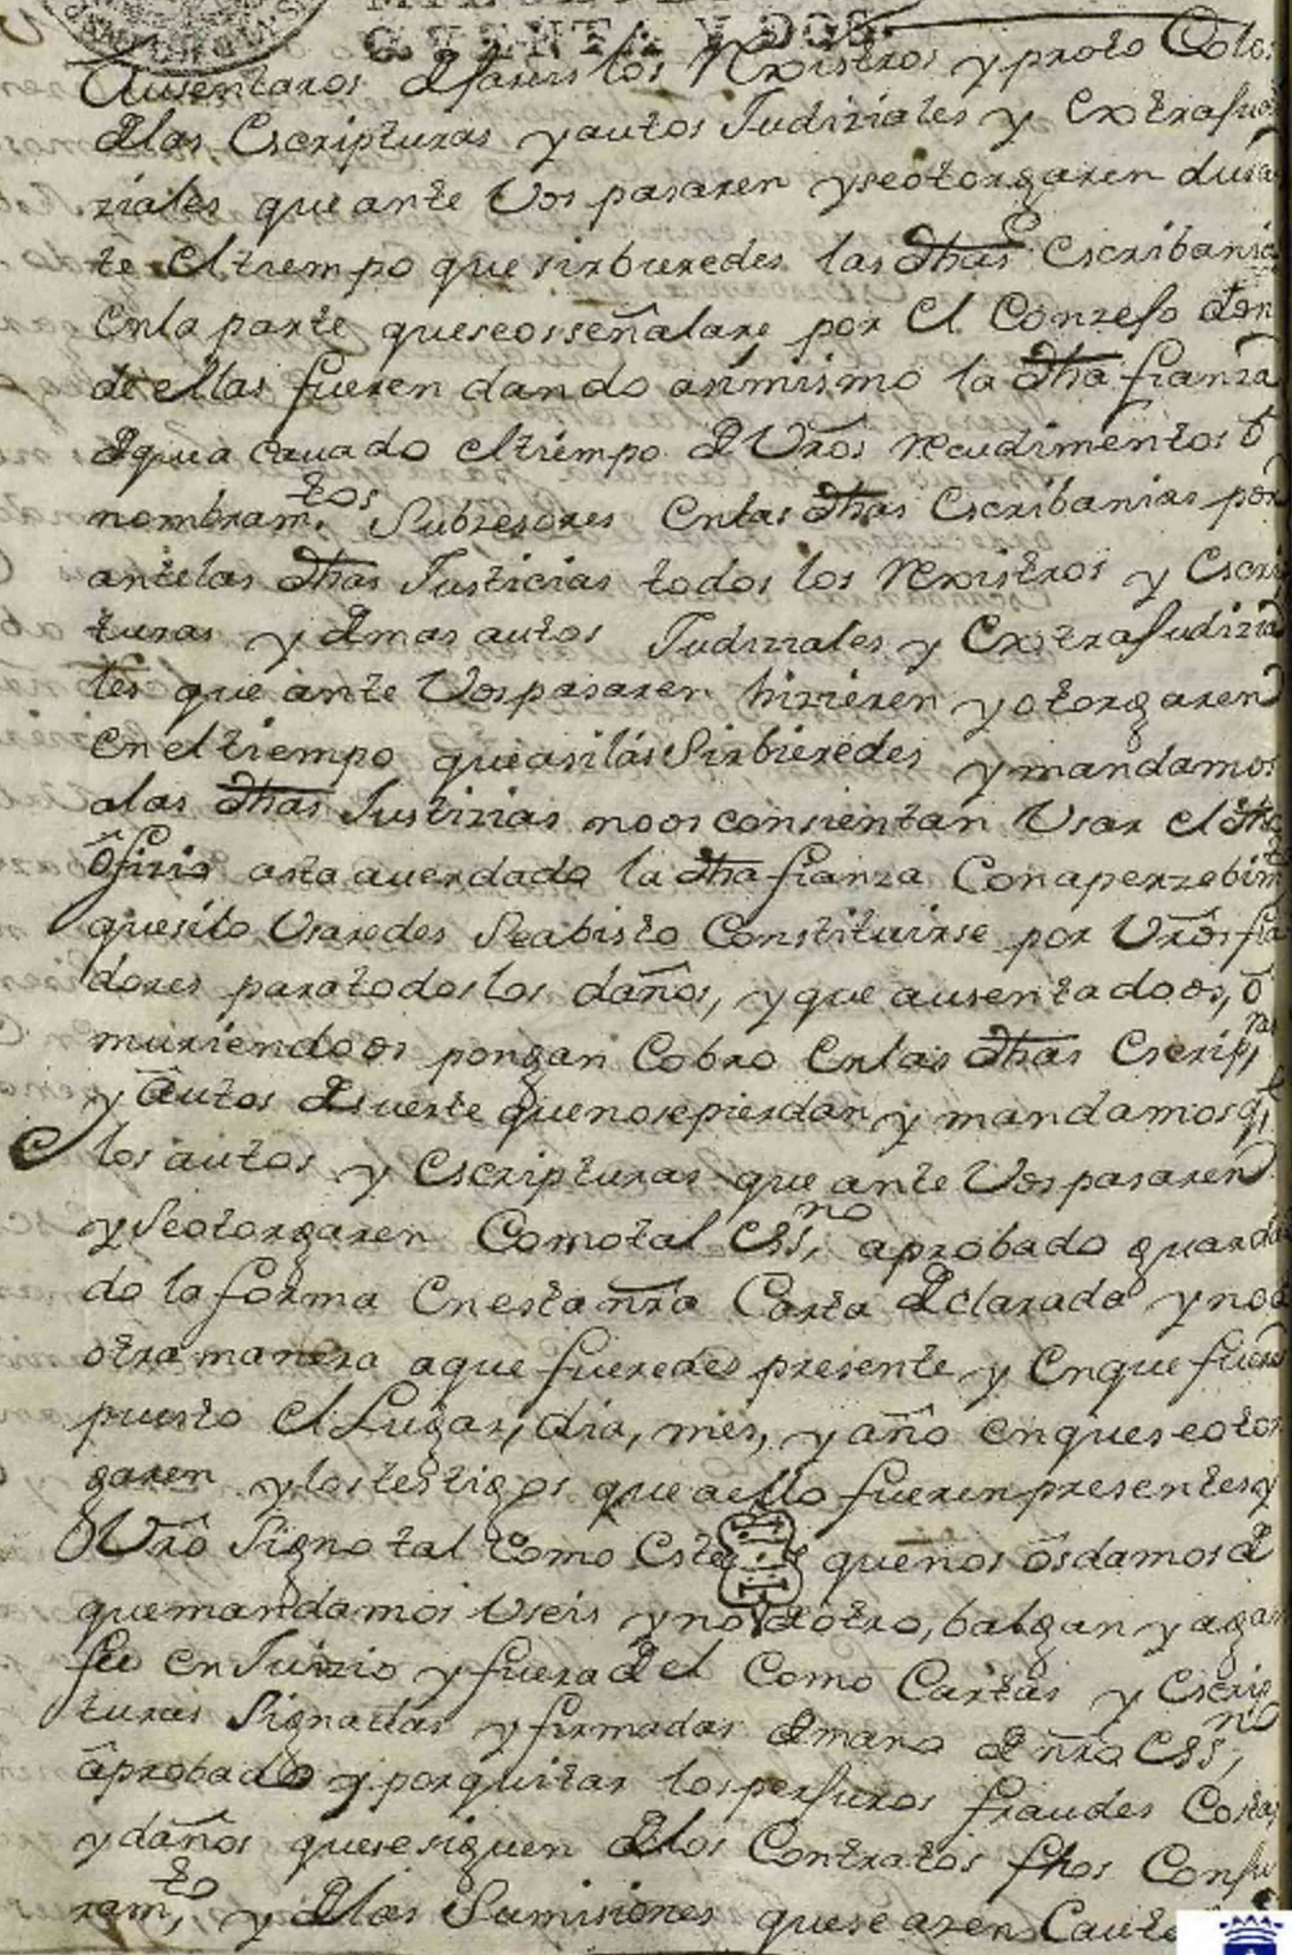 QUENTA Y DOS.
Ausentaros dejareis los Rexistros y proto Colos
Delas Escripturas y autos Judiziales y Extraju
ziales que ante Vos pasaren y se otorgaren duran
te el tiempo que sirbieredes las dhas Escribanias
En la parte que se os señalare por el Conzejo don
de ellas fueren dando asimismo la dha fianza
De que acavado el tiempo de Vros recudimentos ô
nombram.tos Subzesores En las dhas Escribanias por
ante las dhas Justicias todos los Rexistros y Escrip
turas y demas autos Judiziales y Extrajudizia
les que ante Vos pasaren hizieren y otorgaren
En el tiempo que asi las Sirbieredes y mandamos
a las dhas Justizias no os consientan Usar el dho
ôfizio asta aver dado la dha fianza Con aperzebim.to
que si lo Usaredes Sea bisto Constituirse por Vros fia
dores para todos los daños, y que ausentado os, ô
muriendo os pongan Cobro En las dhas Escrip,ras
y autos de suerte que no se pierdan y mandamos q,e
los autos y Escripturas que ante Vos pasaren
y Se otorgaren Como tal Ess,no aprobado guardan
do la forma En esta nra Carta declarada y no de
otra manera a que fueredes presente y En que fuere
puesto el Lugar, dia, mes, y año en que se otor
garen y los testigos que a ello fueren presentes y
Vro Signo tal Como Este que nos ôs damos de
que mandamos Useis y no de otro, balgan y agan
fee en Juizio y fuera de el Como Cartas y Escrip
turas Signadas y firmadas de mano de nro Ess,no
aprobado y por quitar los perjuros fraudes Costas
y daños que se siguen de los Contratos fhos Con ju
ram,to y de las Sumisiones que se azen Caute